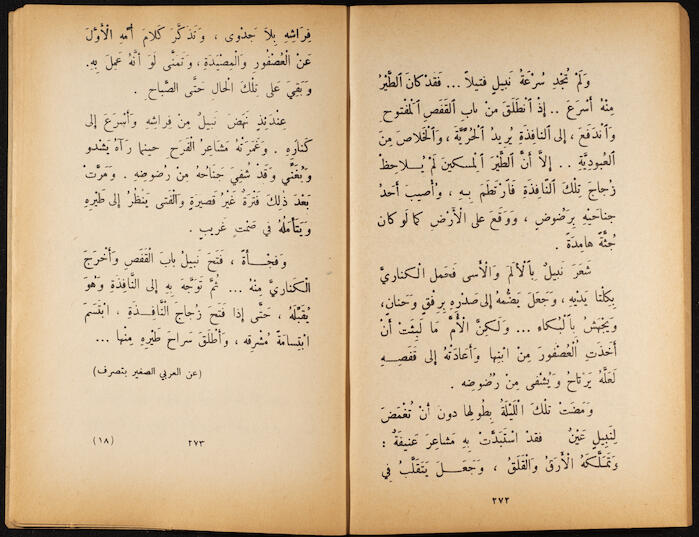 وَلَمْ تُجْدِ سُرْعَةُ نَبيلٍ فَتيلاً ... فَقَدْ كانَ ٱلطَّيْرُ
مِنْهُ أَسْرَعَ .. إِذْ ٱنْطَلَقَ مِنْ بابِ ٱلقَفَصِ ٱلْمَفْتوحِ
وَٱنْدَفَعَ ، إِلى ٱلنافِذَةِ يُريدُ ٱلْحُرِّيَّةَ ، وَٱلْخَلاصَ مِنَ
ٱلعُبودِيَّةِ .. إِلاَّ أَنَّ ٱلطَّيْرَ ٱلمِسكينَ لَمْ يُلاحِظْ
زُجاجَ تِلْكَ ٱلنَّافِذَةِ فَٱرْتَطَمَ بِهِ ، وَأُصيبَ أَحَدُ
جناحَيْهِ بِرَضُوضٍ ، وَوَقَعَ على ٱلأَرْضِ كما لَو كان
جُثَّةً هامِدَةً .
شَعَرَ نَبيلُ بِٱلأَلَمِ وَٱلأَسى فَحَمل ٱلكناريَّ
بِكِلْتا يَدَيْهِ ، وَجَعَلَ يَضُمُّهُ إِلى صَدْرِهِ بِرِفْقٍ وَحَنانٍ،
وَيَجْهَشُ بِٱلْبُكاءِ ... وَلكِنَّ ٱلأُمَّ مَا لَبِثَتْ أَنْ
أَخَذَتِ ٱلْعُصْفورَ مِنِ ٱبْنِها وَأَعادَتْهُ إِلى قَفَصِهِ
لَعَلَّهُ يَرْتاحُ وَيُشْفى مِنْ رُضوضِهِ .
وَمَضَتْ تلكَ ٱللَّيْلَةُ بِطُولِها دونَ أَنْ تُغْمَضَ
لِنَبيلٍ عَيْنٌ فقد ٱسْتَبَدَّتْ بِهِ مَشاعِرُ عَنيفَةٌ :
وَتَمَلَّكَهُ ٱلأَرَقُ وَٱلْقَلَقُ ، وَجَعَلَ يَتَقَلَّبُ في
٢٧٢
فِراشِهِ بِلاَ جَدْوى ، وَتَذَكَّرَ كَلامَ أُمِّهِ الْأَوَّلَ
عَنْ الْعُصْفُورِ وَالْمِصْيَدَةِ ، وَتَمَنَّى لَوْ أَنَّهُ عَمِلَ بِهِ.
وَبَقِيَ عَلى تِلْكَ الْحالِ حَتَّى الصَّباحِ .
عِنْدَئِذٍ نَهَضَ نَبيلُ مِنْ فِراشِهِ وَأَسْرَعَ إِلى
كَنارِهِ . وَغَمَرَتْهُ مَشاعِرُ الْفَرَحِ حينما رَآهُ يَشْدو
وَيُغَنِّي وَقَدْ شُفِيَ جَناحُهُ مِنْ رُضوضِهِ . وَمَرَّتْ
بَعْدَ ذلِكَ فَتْرَةٌ غَيْرُ قَصيرَةٍ وَالْفَتى يَنْظُرُ إِلى طَيْرِهِ
وَيَتَأَمَّلُهُ في صَمْتٍ غَريبٍ .
وَفَجْأَةً ، فَتَحَ نَبيلُ بابَ الْقَفَصِ وَأَخْرَجَ
الكَنارِيَّ مِنْهُ ... ثُمَّ تَوَجَّهَ بِهِ إِلى النَّافِذَةِ وَهُوَ
يُقَبِّلُهُ ، حَتَّى إِذا فَتَحَ زُجاجَ النَّافِذَةِ ، ابْتَسَمَ
ابْتِسامَةً مُشْرِقَه ، وَأَطْلَقَ سَراحَ طَيْرِهِ مِنْها ...
(عن العربي الصغير بتصرف)
٢٧٣
(١٨)